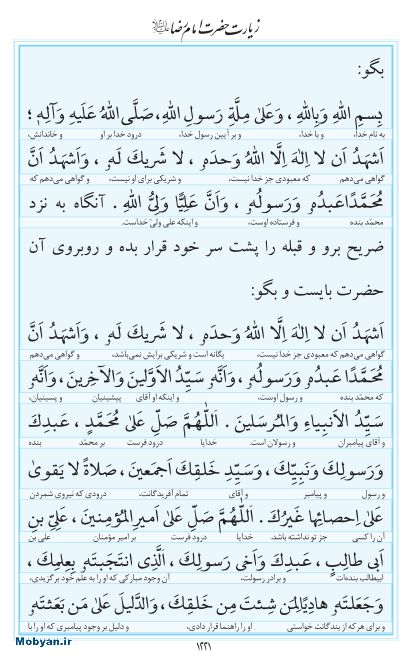 زیارت حضرت امام رضا علیه‌السلام
بگو:
بِسمِ اللهِ وَبِاللهِ، وَعَلىٰ مِلَّةِ رَسولِ اللهِ، صَلَّى اللهُ عَلَيهِ وَآلِهِ؛
به نام خدا، و با خدا، و بر آیین رسول خدا، درود خدا بر او و خاندانش،
اَشهَدُ اَن لا اِلٰهَ اِلَّا اللهُ وَحدَهُ، لا شَريكَ لَهُ، وَاَشهَدُ اَنَّ
گواهی می‌دهم که معبودی جز خدا نیست، و شریکی برای او نیست، و گواهی می‌دهم که
مُحَمَّدًا عَبدُهُ وَرَسولُهُ، وَاَنَّ عَلِيًّا وَلِيُّ اللهِ. آنگاه به نزد
محمّد بنده و فرستاده اوست، و اینکه علی ولیّ خداست.
ضریح برو و قبله را پشت سر خود قرار بده و روبروی آن
حضرت بایست و بگو:
اَشهَدُ اَن لا اِلٰهَ اِلَّا اللهُ وَحدَهُ، لا شَريكَ لَهُ، وَاَشهَدُ اَنَّ
گواهی می‌دهم که معبودی جز خدا نیست، یگانه است و شریکی برایش نمی‌باشد، و گواهی می‌دهم
مُحَمَّدًا عَبدُهُ وَرَسولُهُ، وَاَنَّهُ سَيِّدُ الاَوَّلينَ وَالآخِرينَ، وَاَنَّهُ
که محمّد بنده و رسول اوست، و اینکه او آقای پیشینیان و پسینیان،
سَيِّدُ الاَنبِياءِ وَالمُرسَلينَ. اَللّٰهُمَّ صَلِّ عَلىٰ مُحَمَّدٍ، عَبدِكَ
و آقای پیامبران و رسولان است. خدایا درود فرست بر محمّد بنده
وَرَسولِكَ وَنَبِيِّكَ، وَسَيِّدِ خَلقِكَ اَجمَعينَ، صَلاةً لا يَقوىٰ
و رسول و پیامبر و آقای تمام آفریدگانت، درودی که نیروی شمردن
عَلىٰ اِحصائِها غَيرُكَ. اَللّٰهُمَّ صَلِّ عَلىٰ اَميرِ المُؤمِنينَ، عَلِيِّ بنِ
آن را کسی جز تو نداشته باشد. خدایا درود فرست بر امیر مؤمنان علی بن
اَبي طالِبٍ، عَبدِكَ وَاَخي رَسولِكَ، الَّذِي انتَجَبتَهُ بِعِلمِكَ،
ابیطالب بنده‌ات و برادر رسولت، آن وجود مبارکی که او را به علم خود برگزیدی،
وَجَعَلتَهُ هادِيًا لِمَن شِئتَ مِن خَلقِكَ، وَالدَّليلَ عَلىٰ مَن بَعَثتَهُ
و برای هرکه از بندگانت خواستی او را راهنما قرار دادی، و دلیل بر وجود پیامبری که او را به
۱۲۲۱
Mobyan.ir